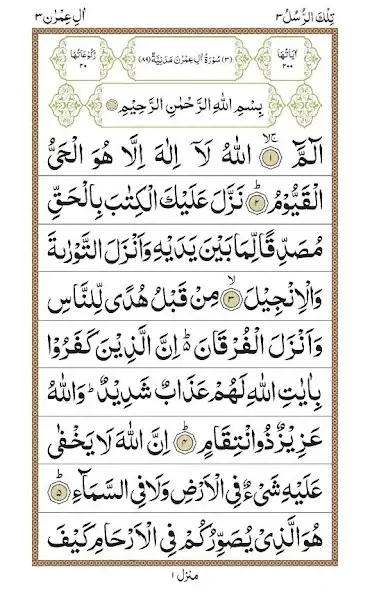 تِلْكَ الرُّسُلُ ٣
اٰلِ عِمْرٰن ٣
اٰيَاتُهَا ٢٠٠
(٣) سُوْرَةُ اٰلِ عِمْرٰنَ مَدَنِيَّةٌ (٨٩)
رُكُوْعَاتُهَا ٢٠
بِسْمِ اللّٰهِ الرَّحْمٰنِ الرَّحِيْمِ
الٓمَّٓ ۙ‏ ۚ‏ ﴿١﴾ اللّٰهُ لَاۤ اِلٰهَ اِلَّا هُوَ الْحَىُّ
الْقَيُّوْمُ ؕ‏ ﴿٢﴾ نَزَّلَ عَلَيْكَ الْكِتٰبَ بِالْحَقِّ
مُصَدِّقًا لِّمَا بَيْنَ يَدَيْهِ وَاَنْزَلَ التَّوْرٰىةَ
وَالْاِنْجِيْلَ ۙ‏ ﴿٣﴾ مِنْ قَبْلُ هُدًى لِّلنَّاسِ
وَاَنْزَلَ الْفُرْقَانَ ؕ اِنَّ الَّذِيْنَ كَفَرُوْا
بِاٰيٰتِ اللّٰهِ لَهُمْ عَذَابٌ شَدِيْدٌ ؕ وَاللّٰهُ
عَزِيْزٌ ذُوانْتِقَامٍ ؕ‏ ﴿٤﴾ اِنَّ اللّٰهَ لَا يَخْفٰى
عَلَيْهِ شَىْءٌ فِى الْاَرْضِ وَلَا فِى السَّمَآءِ ؕ‏ ﴿٥﴾
هُوَ الَّذِىْ يُصَوِّرُكُمْ فِى الْاَرْحَامِ كَيْفَ
منزل ١